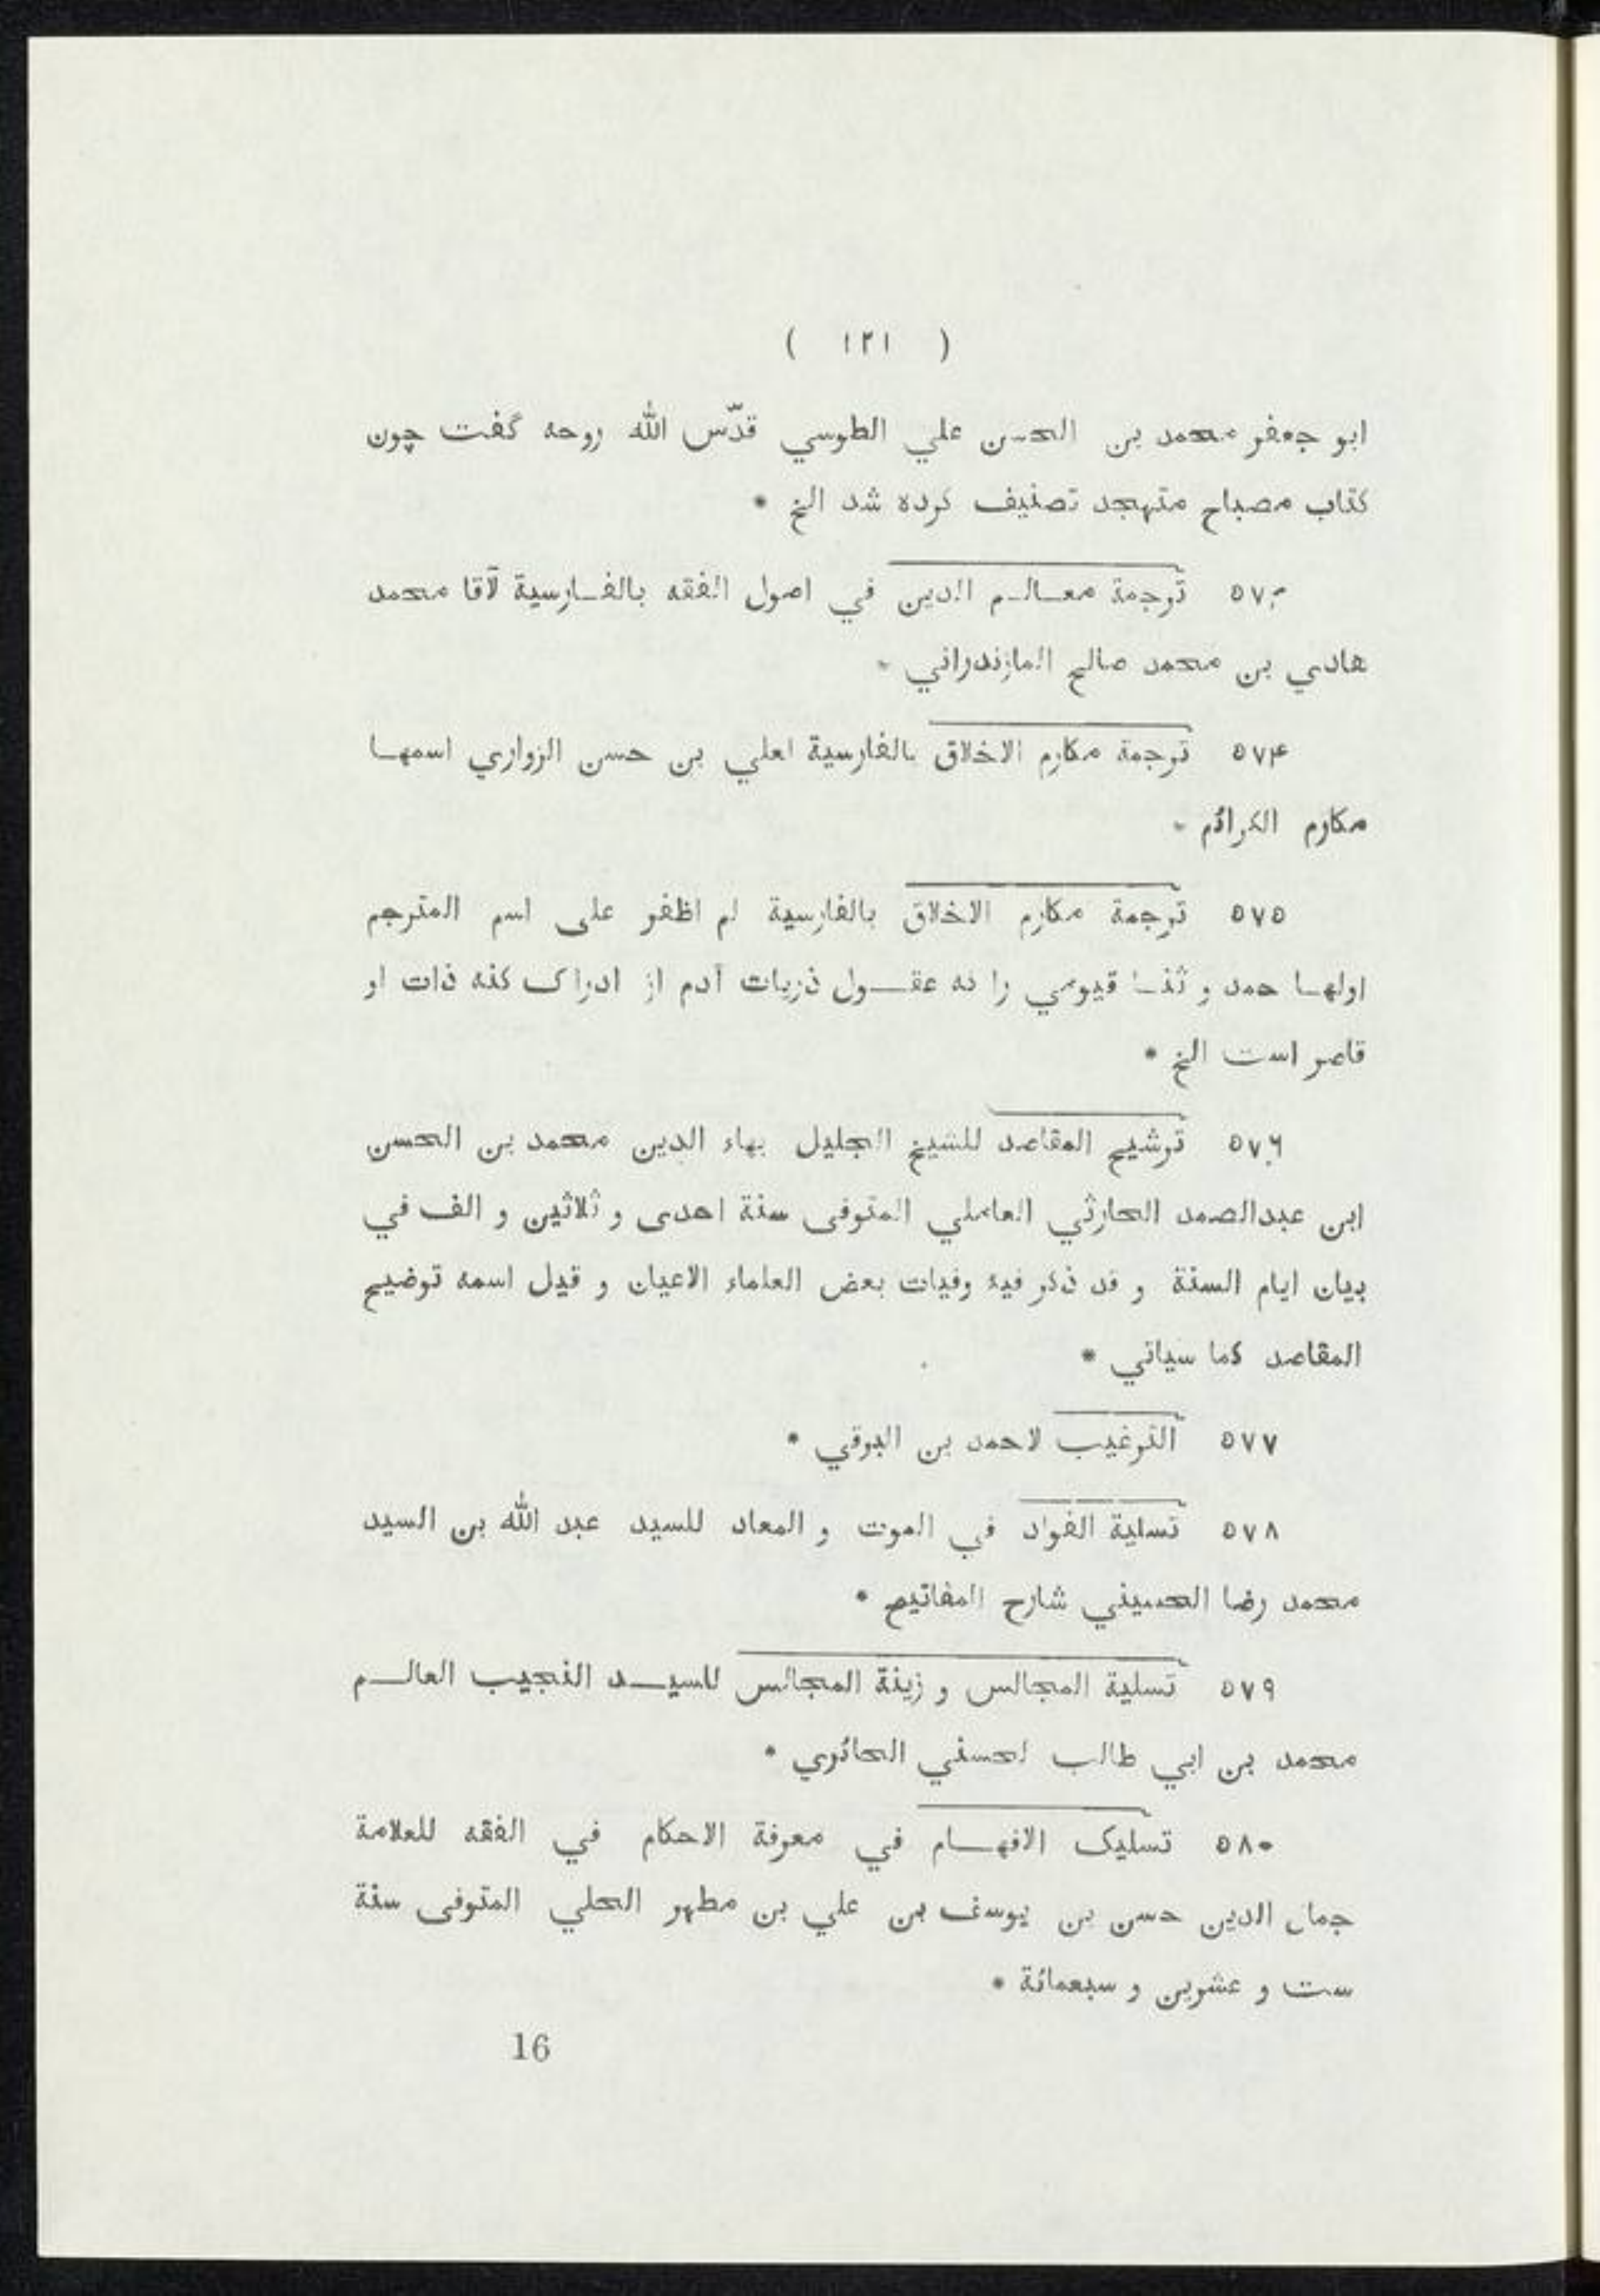 ( ١٢١ )
ابو جعفر محمد بن الحسن علي الطوسي قدّس الله روحه گفت چون
كتاب مصباح متهجد تصنيف كرده شد الخ *
٥٧٣ ترجمة معالم الدين في اصول الفقه بالفارسية لآقا محمد
هادي بن محمد صالح المازندراني *
٥٧۴ ترجمة مكارم الاخلاق بالفارسية لعلي بن حسن الزواري اسمها
مكارم الكرائم *
٥٧٥ ترجمة مكارم الاخلاق بالفارسية لم اظفر على اسم المترجم
اولها حمد و ثنا قيومي را كه عقول ذريات آدم از ادراک كنه ذات او
قاصر است الخ *
٥٧٦ ترشيح المقاصد للشيخ الجليل بهاء الدين محمد بن الحسن
ابن عبدالصمد الحارثي العاملي المتوفى سنة احدى و ثلاثين و الف في
بيان ايام السنة و قد ذكر فيه وفيات بعض العلماء الاعيان و قيل اسمه توضيح
المقاصد كما سياتي *
٥٧٧ الترغيب لاحمد بن البرقي *
٥٧٨ تسلية الفواد في الموت و المعاد للسيد عبد الله بن السيد
محمد رضا الحسيني شارح المفاتيح *
٥٧٩ تسلية المجالس و زينة المجالس للسيد النجيب العالم
محمد بن ابي طالب لحسني الحائري *
٥٨٠ تسليک الافهام في معرفة الاحكام في الفقه للعلامة
جمال الدين حسن بن يوسف بن علي بن مطهر الحلي المتوفى سنة
ست و عشرين و سبعمائة *
16